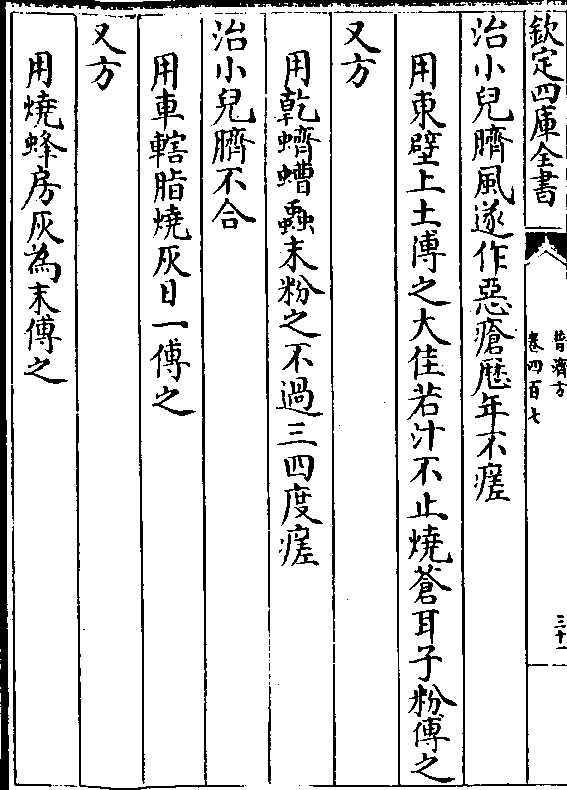 欽定四庫全書
普濟方
卷四百七
三十一
治小兒臍風遂作惡瘡歴年不瘥
用東壁上土傅之大佳若汁不止燒蒼耳子粉傅之
又方
用乾蠐螬蟲末粉之不過三四度瘥
治小兒臍不合
用車轄脂燒灰日一傅之
又方
用燒蜂房灰為末傅之